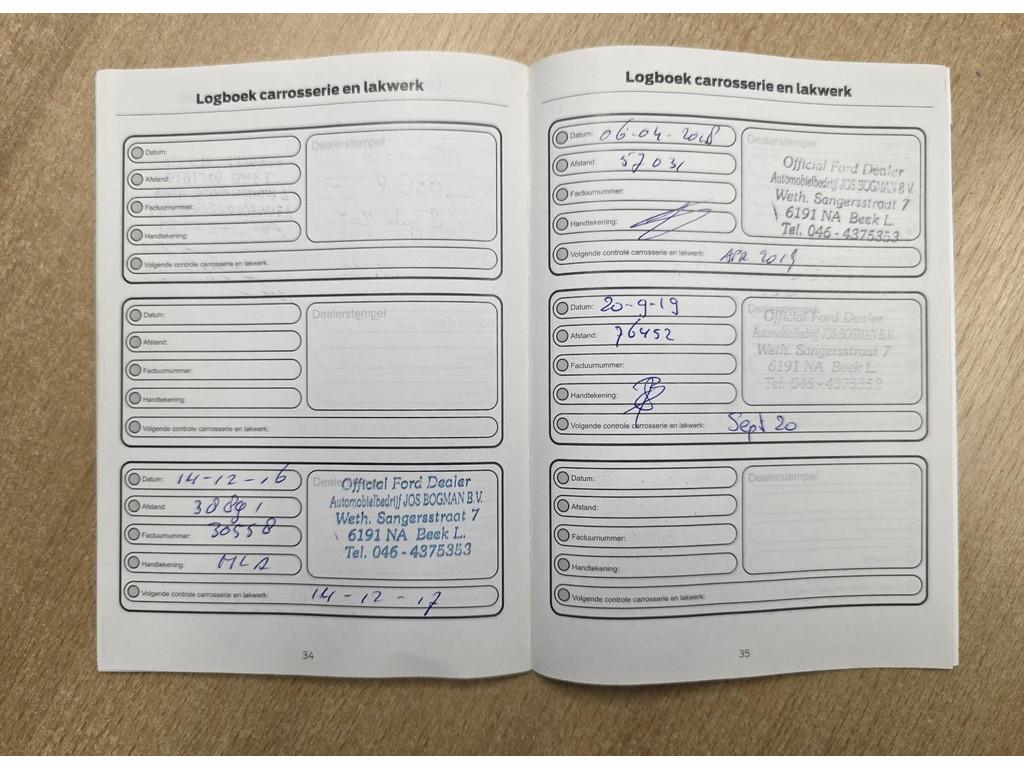 Logboek carrosserie en lakwerk
Datum:
Afstand:
Factuurnummer:
Handtekening:
Dealerstempel
Volgende controle carrosserie en lakwerk:
Datum:
Afstand:
Factuurnummer:
Handtekening:
Dealerstempel
Volgende controle carrosserie en lakwerk:
Datum: 14-12-16
Afstand: 38891
Factuurnummer: 30558
Handtekening: MLA
Official Ford Dealer
Automobielbedrijf JOS BOGMAN B.V.
Weth. Sangersstraat 7
6191 NA Beek L.
Tel. 046 - 4375353
Volgende controle carrosserie en lakwerk: 14-12-17
34
Logboek carrosserie en lakwerk
Datum: 06-04-2018
Afstand: 57031
Factuurnummer:
Handtekening:
Dealerstempel
Official Ford Dealer
Automobielbedrijf JOS BOGMAN B.V.
Weth. Sangersstraat 7
6191 NA Beek L.
Tel. 046 - 4375353
Volgende controle carrosserie en lakwerk: APR 2019
Datum: 20-9-19
Afstand: 76452
Factuurnummer:
Handtekening:
Official Ford Dealer
Automobielbedrijf JOS BOGMAN B.V.
Weth. Sangersstraat 7
6191 NA Beek L.
Tel. 046 - 4375353
Volgende controle carrosserie en lakwerk: Sept 20
Datum:
Afstand:
Factuurnummer:
Handtekening:
Dealerstempel
Volgende controle carrosserie en lakwerk:
35